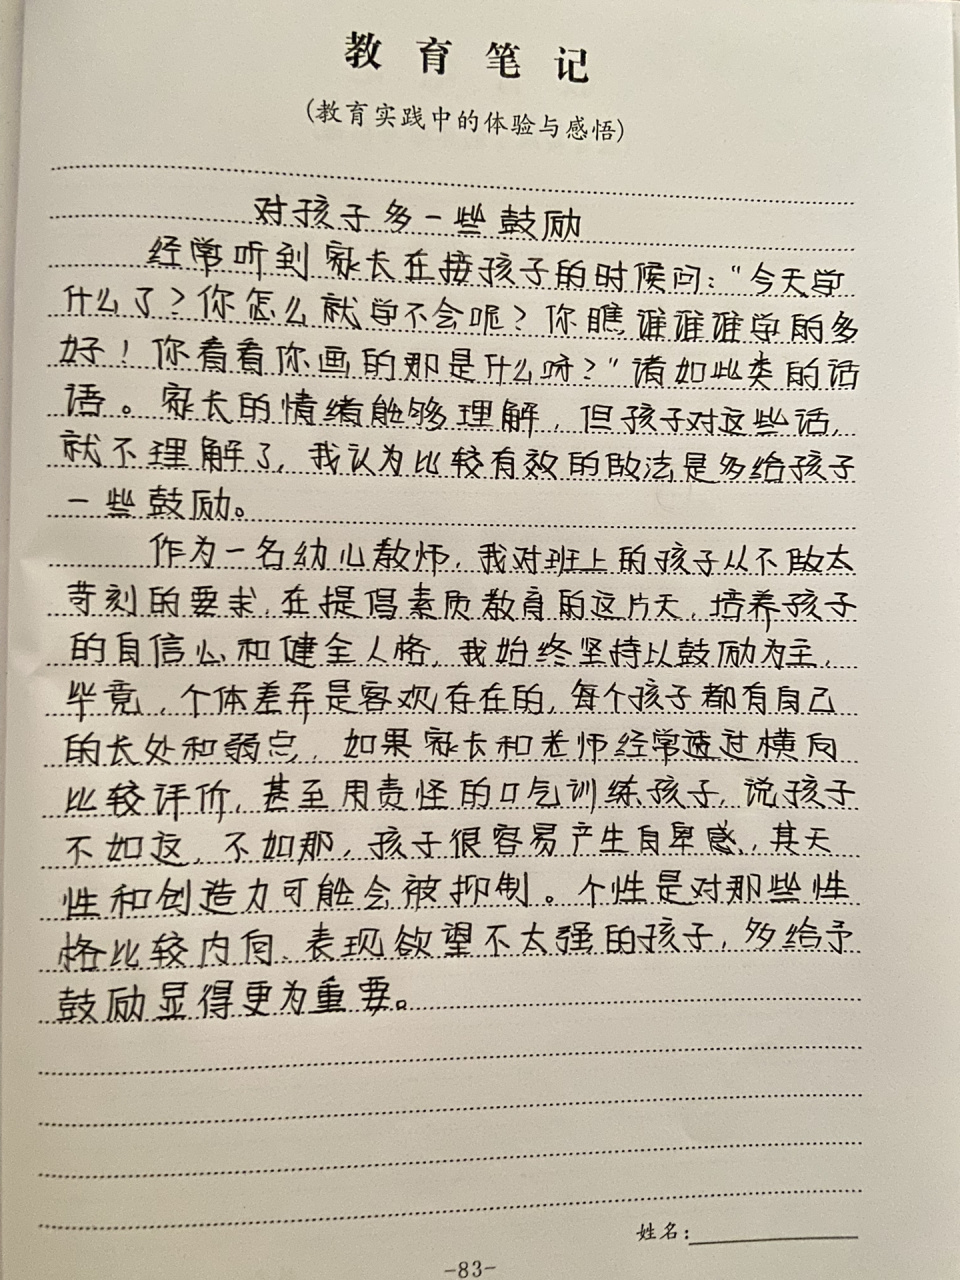 教育笔记
(教育实践中的体验与感悟)
对孩子多一些鼓励
经常听到家长在接孩子的时候问："今天学
什么了？你怎么就学不会呢？你瞧谁谁谁学的多
好！你看看你画的那是什么呀？"诸如此类的话
语。家长的情绪能够理解，但孩子对这些话，
就不理解了，我认为比较有效的做法是多给孩子
一些鼓励。
作为一名幼儿教师，我对班上的孩子从不做太
苛刻的要求，在提倡素质教育的这片天，培养孩子
的自信心和健全人格，我始终坚持以鼓励为主，
毕竟，个体差异是客观存在的，每个孩子都有自己
的长处和弱点，如果家长和老师经常透过横向
比较评价，甚至用责怪的口气训练孩子，说孩子
不如这，不如那，孩子很容易产生自卑感，其天
性和创造力可能会被抑制。个性是对那些性
格比较内向、表现欲望不太强的孩子，多给予
鼓励显得更为重要。
姓名：
-83-